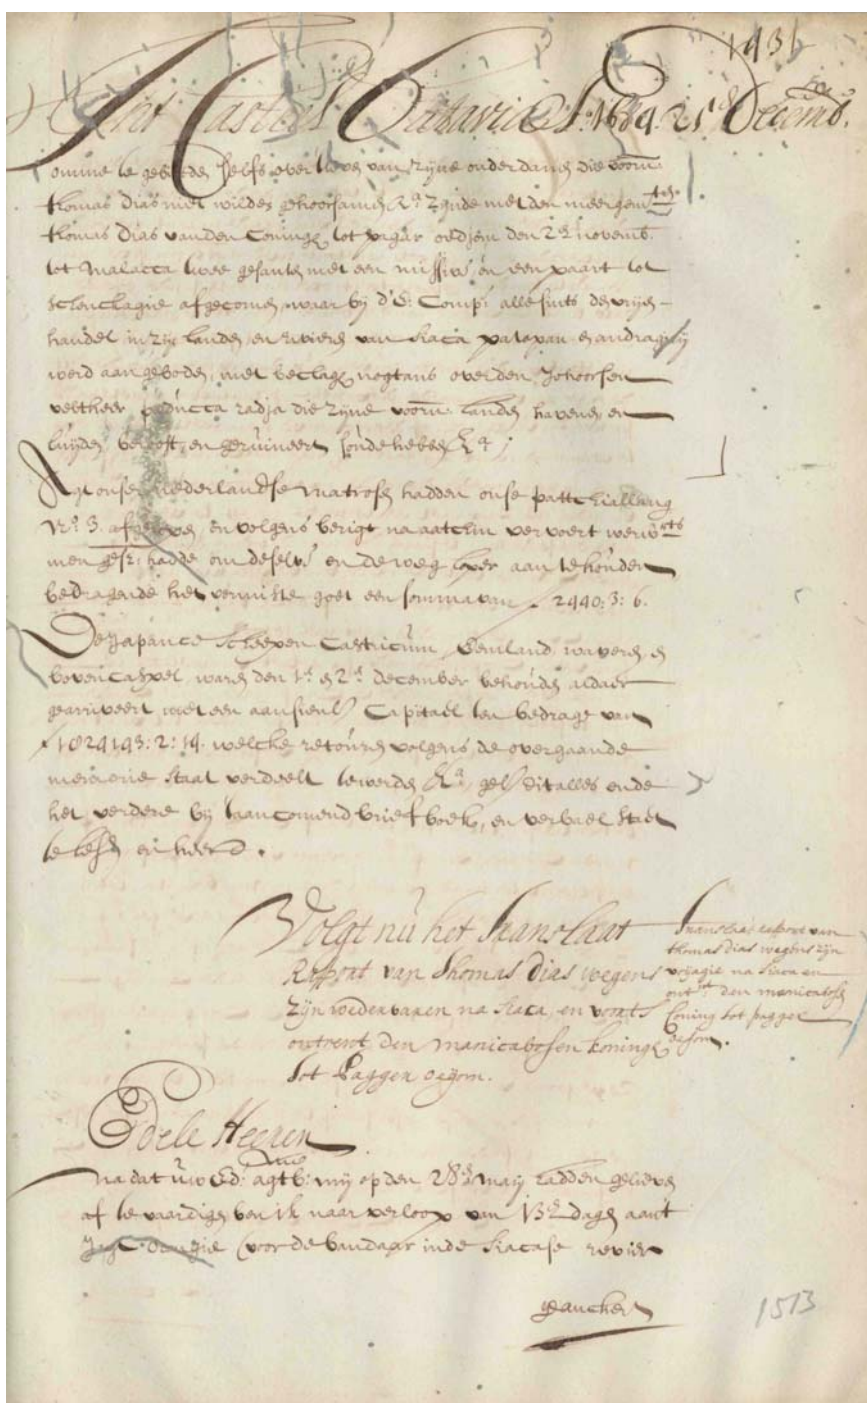 1431
Int Casteel Batavia Ao. 1684. 25e. Decemb.
omme te gebieden selfs over lieven van zijne onderdanen die voorn:
thomas dias niet wilden gehoorsamen &a. zijnde met den meergem:
thomas dias vanden Coninge tot pagar oudjem den 2e. novemb:
tot Malacca twee gesanten met een missive en een paart tot
schenckagie afgecomen, waar bij d' E: Comp: alle sints de vrijen
handel in zijn landen en rivieren van siaca patapan en andragirij
werd aangeboden, met beclagh nogtans over den Johoorsen
veltheer paducca radja die zijne voorn: landen havenen en
luijden berooft, en geruineert soude hebben &a;
Agt onse nederlandse matrosen hadden onse pattchiallang
No. 3. afgelopen en volgens berigt na aatchin vervoert werw:rts
men gesz: hadde om deselve en de weg loper aan te houden
bedragende het vermiste goet een somma van f 2440:3:6.
De Japance scheepen Castricum, Eemland, waveren en
bovencarspel waren den 1e. en 2e. december behouden aldaar
gearriveert met een aansienl: Capitael ten bedrage van
f 1024193:2:14. welcke retouren volgens de overgaande
memorie staat verdeelt te werden &a. gel: dit alles ende
het verdere bij t'aancomend brieff boek, en verbael staat
te lesen en heerd.
Volgt nu het Translaat
Rapport van Thomas dias wegens
zijn wedervaren na siaca, en voorts
ontrent den manicabosen koninge
tot Pagger oejom.
Translaat rapport van
thomas dias wegens zijn
voijagie na siaca en
ont:t den manicabosen
Coning tot pagger
oejom.
Edele Heeren
na dat uw Ed: agtb: mij op den 28e. maij hadden gelieven
af te vaardigen ben ik naar verloop van 13e. dagen aant
voor de bandaar inde siacase revier
geanckert
1513